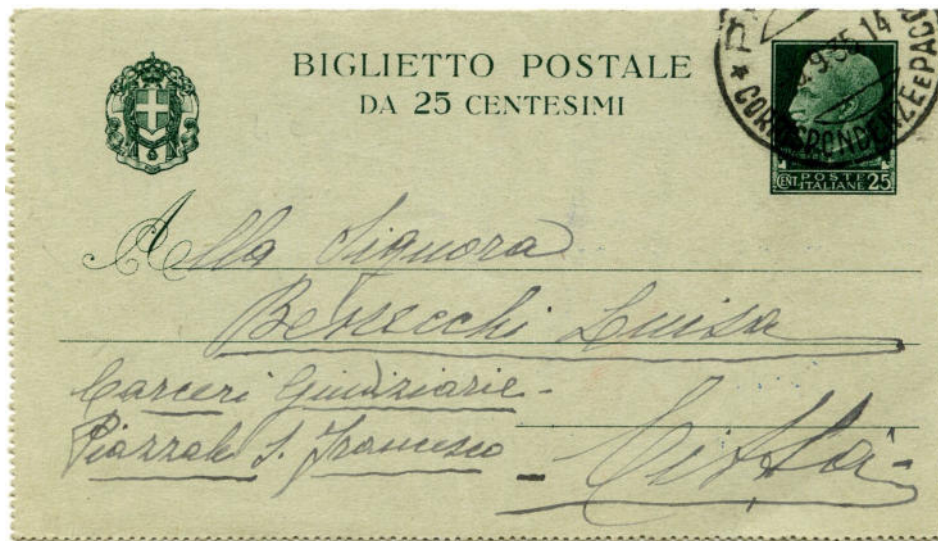 BIGLIETTO POSTALE
DA 25 CENTESIMI
9.35.14
CORRISPONDENZE E PACC
CENT. POSTE ITALIANE 25
Alla Signora
Luisa
Carceri Giudiziarie -
Piazzale S. Francesco
- Città -